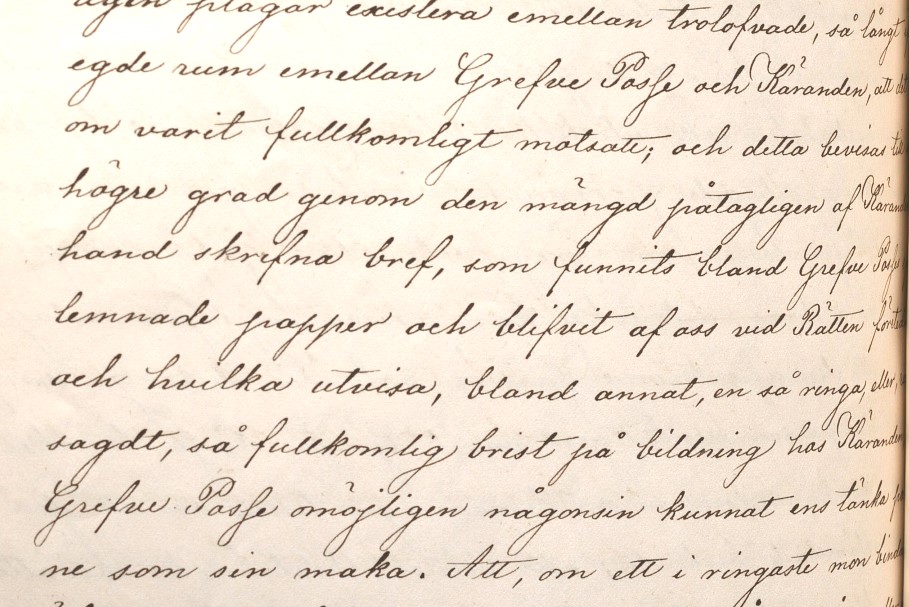 plägar existera emellan trolofvade, så långt
egde rum emellan Grefve Posse och Käranden, att
om varit fullkomligt motsatt; och detta bevisas
högre grad genom den mängd påtagligen af
hand skrifna bref, som funnits bland Grefve
lemnade papper och blifvit af oss vid Rätten
och hvilka utvisa, bland annat, en så ringa, eller,
sagdt, så fullkomlig brist på bildning hos Käranden
Grefve Posse omöjligen någonsin kunnat ens tänka
ne som sin maka. Att, om ett i ringaste mon